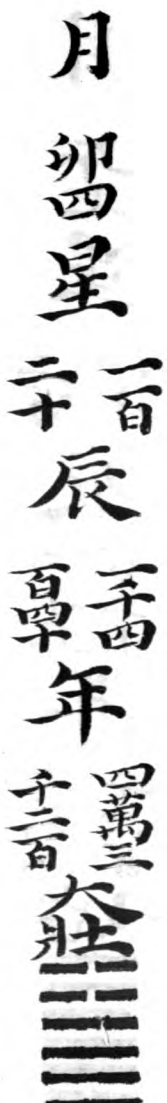 月卯四星一百二十辰一千四百四十年四萬三千二百大壯